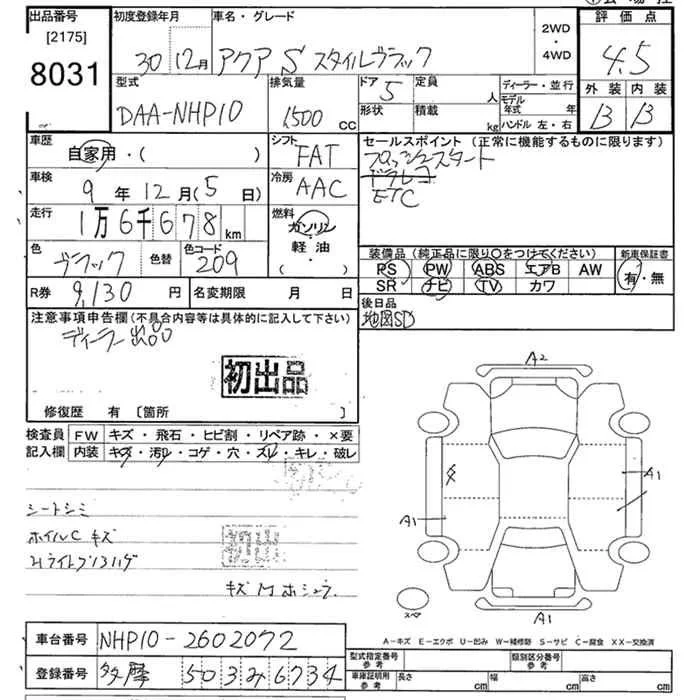 出品番号
[2175]
8031
初度登録年月
30 12月
車名・グレード
アクア S スタイルブラック
2WD
・
4WD
評価点
4.5
外装 内装
B B
型式
DAA-NHP10
排気量
1500 cc
ドア
5
形状
定員
人
積載
kg
ディーラー・並行
モデル
年式 年
ハンドル 左・右
車歴
自家用・( )
シフト
FAT
セールスポイント (正常に機能するものに限ります)
プッシュスタート
ドラレコ
ETC
車検
9 年 12 月(5 日)
冷房
AAC
走行
1万6千678 km
燃料
ガソリン
軽油
( ・ )
色
ブラック
色替
色コード
209
装備品 (純正品に限り○をつけてください)
PS PW ABS エアB AW
SR ナビ TV カワ
新車保証書
有・無
R券 9,130 円
名変期限 月 日
後日品
地図SD
注意事項申告欄(不具合内容等は具体的に記入して下さい)
ディーラー出品
初出品
修復歴 有 [箇所 ]
検査員
記入欄
FW キズ・飛石・ヒビ割・リペア跡・×要
内装 キズ・汚レ・コゲ・穴・スレ・キレ・破レ
シートシミ
ホイルC キズ
キズ
A2
A1
A1
A1
スペ
A-キズ E-エクボ U-凹み W-補修跡 S-サビ C-腐食 XX-交換済
車台番号 NHP10-2602072
登録番号 多摩 503 み 6734
型式指定番号
参考
類別区分番号
参考
車庫証明用
参考
長さ cm
幅 cm
高さ cm